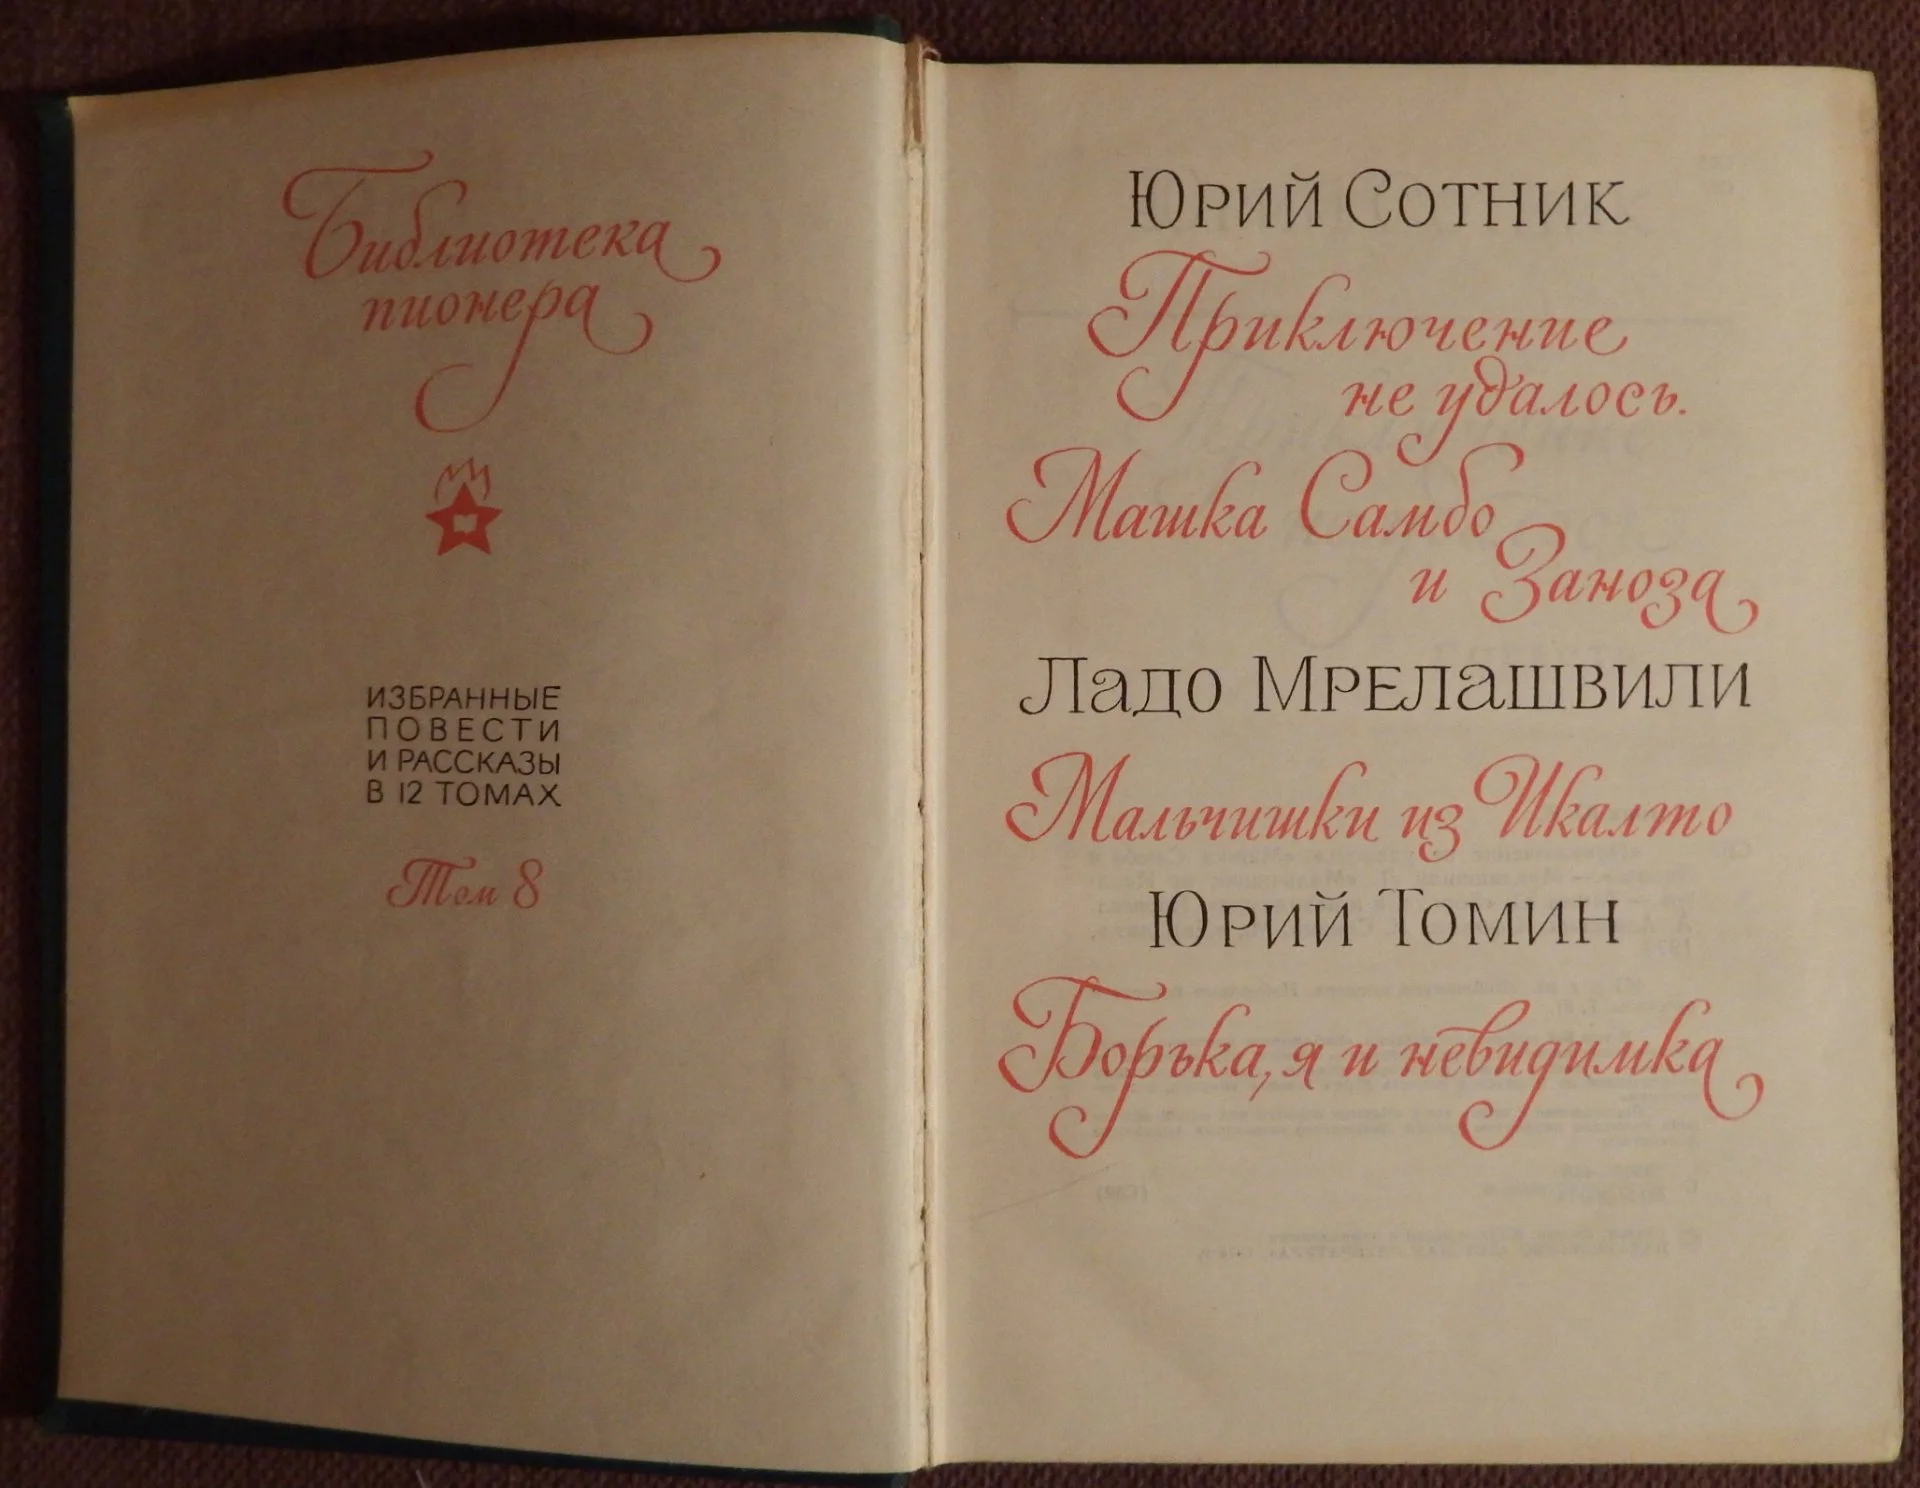 Библиотека
пионера
ИЗБРАННЫЕ
ПОВЕСТИ
И РАССКАЗЫ
В 12 ТОМАХ
Том 8
ЮРИЙ СОТНИК
Приключение
не удалось.
Машка Самбо
и Заноза
ЛАДО МРЕЛАШВИЛИ
Мальчишки из Икалто
ЮРИЙ ТОМИН
Борька, я и невидимка